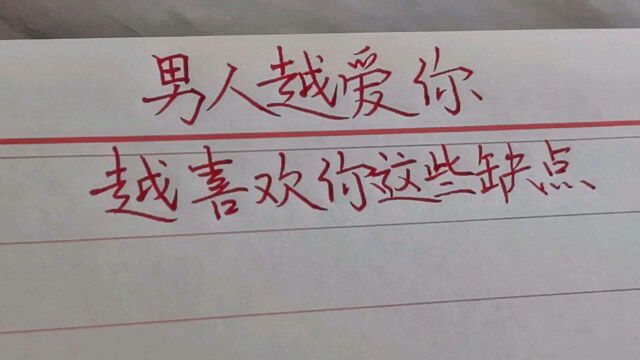 男人越爱你
越喜欢你这些缺点